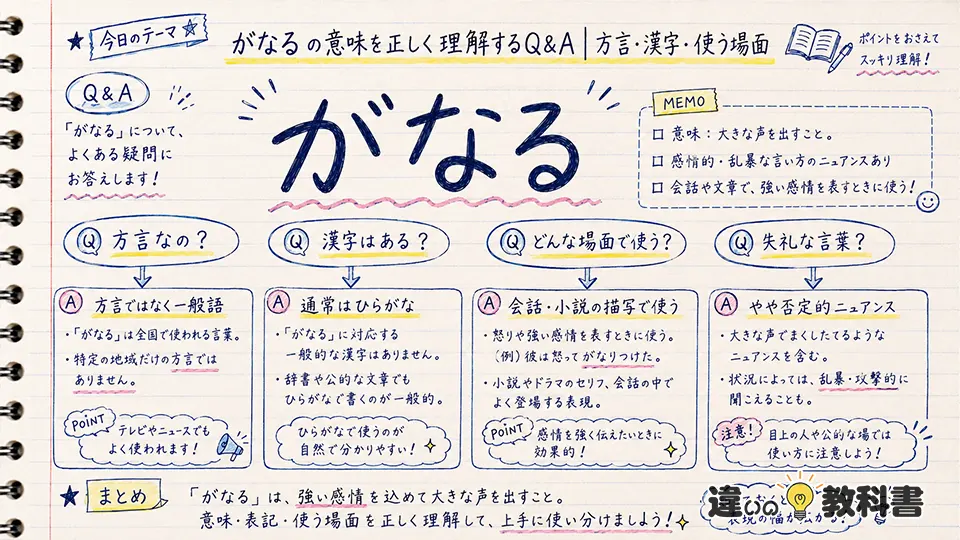 今日のテーマ
がなるの意味を正しく理解するQ&A|方言・漢字・使う場面
ポイントをおさえて
スッキリ理解!
Q&A
「がなる」について、
よくある疑問に
お答えします!
がなる
MEMO
意味:大きな声を出すこと。
感情的・乱暴な言い方のニュアンスあり
会話や文章で、強い感情を表すときに使う!
Q 方言なの?
A 方言ではなく一般語
・「がなる」は全国で使われる言葉。
・特定の地域だけの方言では
ありません。
POINT
テレビやニュースでも
よく使われます!
Q 漢字はある?
A 通常はひらがな
・「がなる」に対応する
一般的な漢字はありません。
・辞書や公的な文章でも
ひらがなで書くのが一般的。
ひらがなで使うのが
自然で分かりやすい!
Q どんな場面で使う?
A 会話・小説の描写で使う
・怒りや強い感情を表すときに使う。
(例)彼は怒ってがなりつけた。
・小説やドラマのセリフ、会話の中で
よく登場する表現。
POINT
感情を強く伝えたいときに
効果的!
Q 失礼な言葉?
A やや否定的ニュアンス
・大きな声でまくしたてるような
ニュアンスを含む。
・状況によっては、乱暴・攻撃的に
聞こえることも。
注意!
目上の人や公的な場では
使い方に注意しよう!
まとめ
「がなる」は、強い感情を込めて大きな声を出すこと。
意味・表記・使う場面を正しく理解して、上手に使い分けましよう!
違いの教科書
表現の幅が広がる!